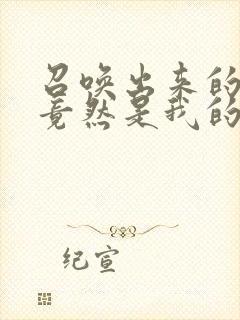 召唤出来的
竟然是我的
纪宣